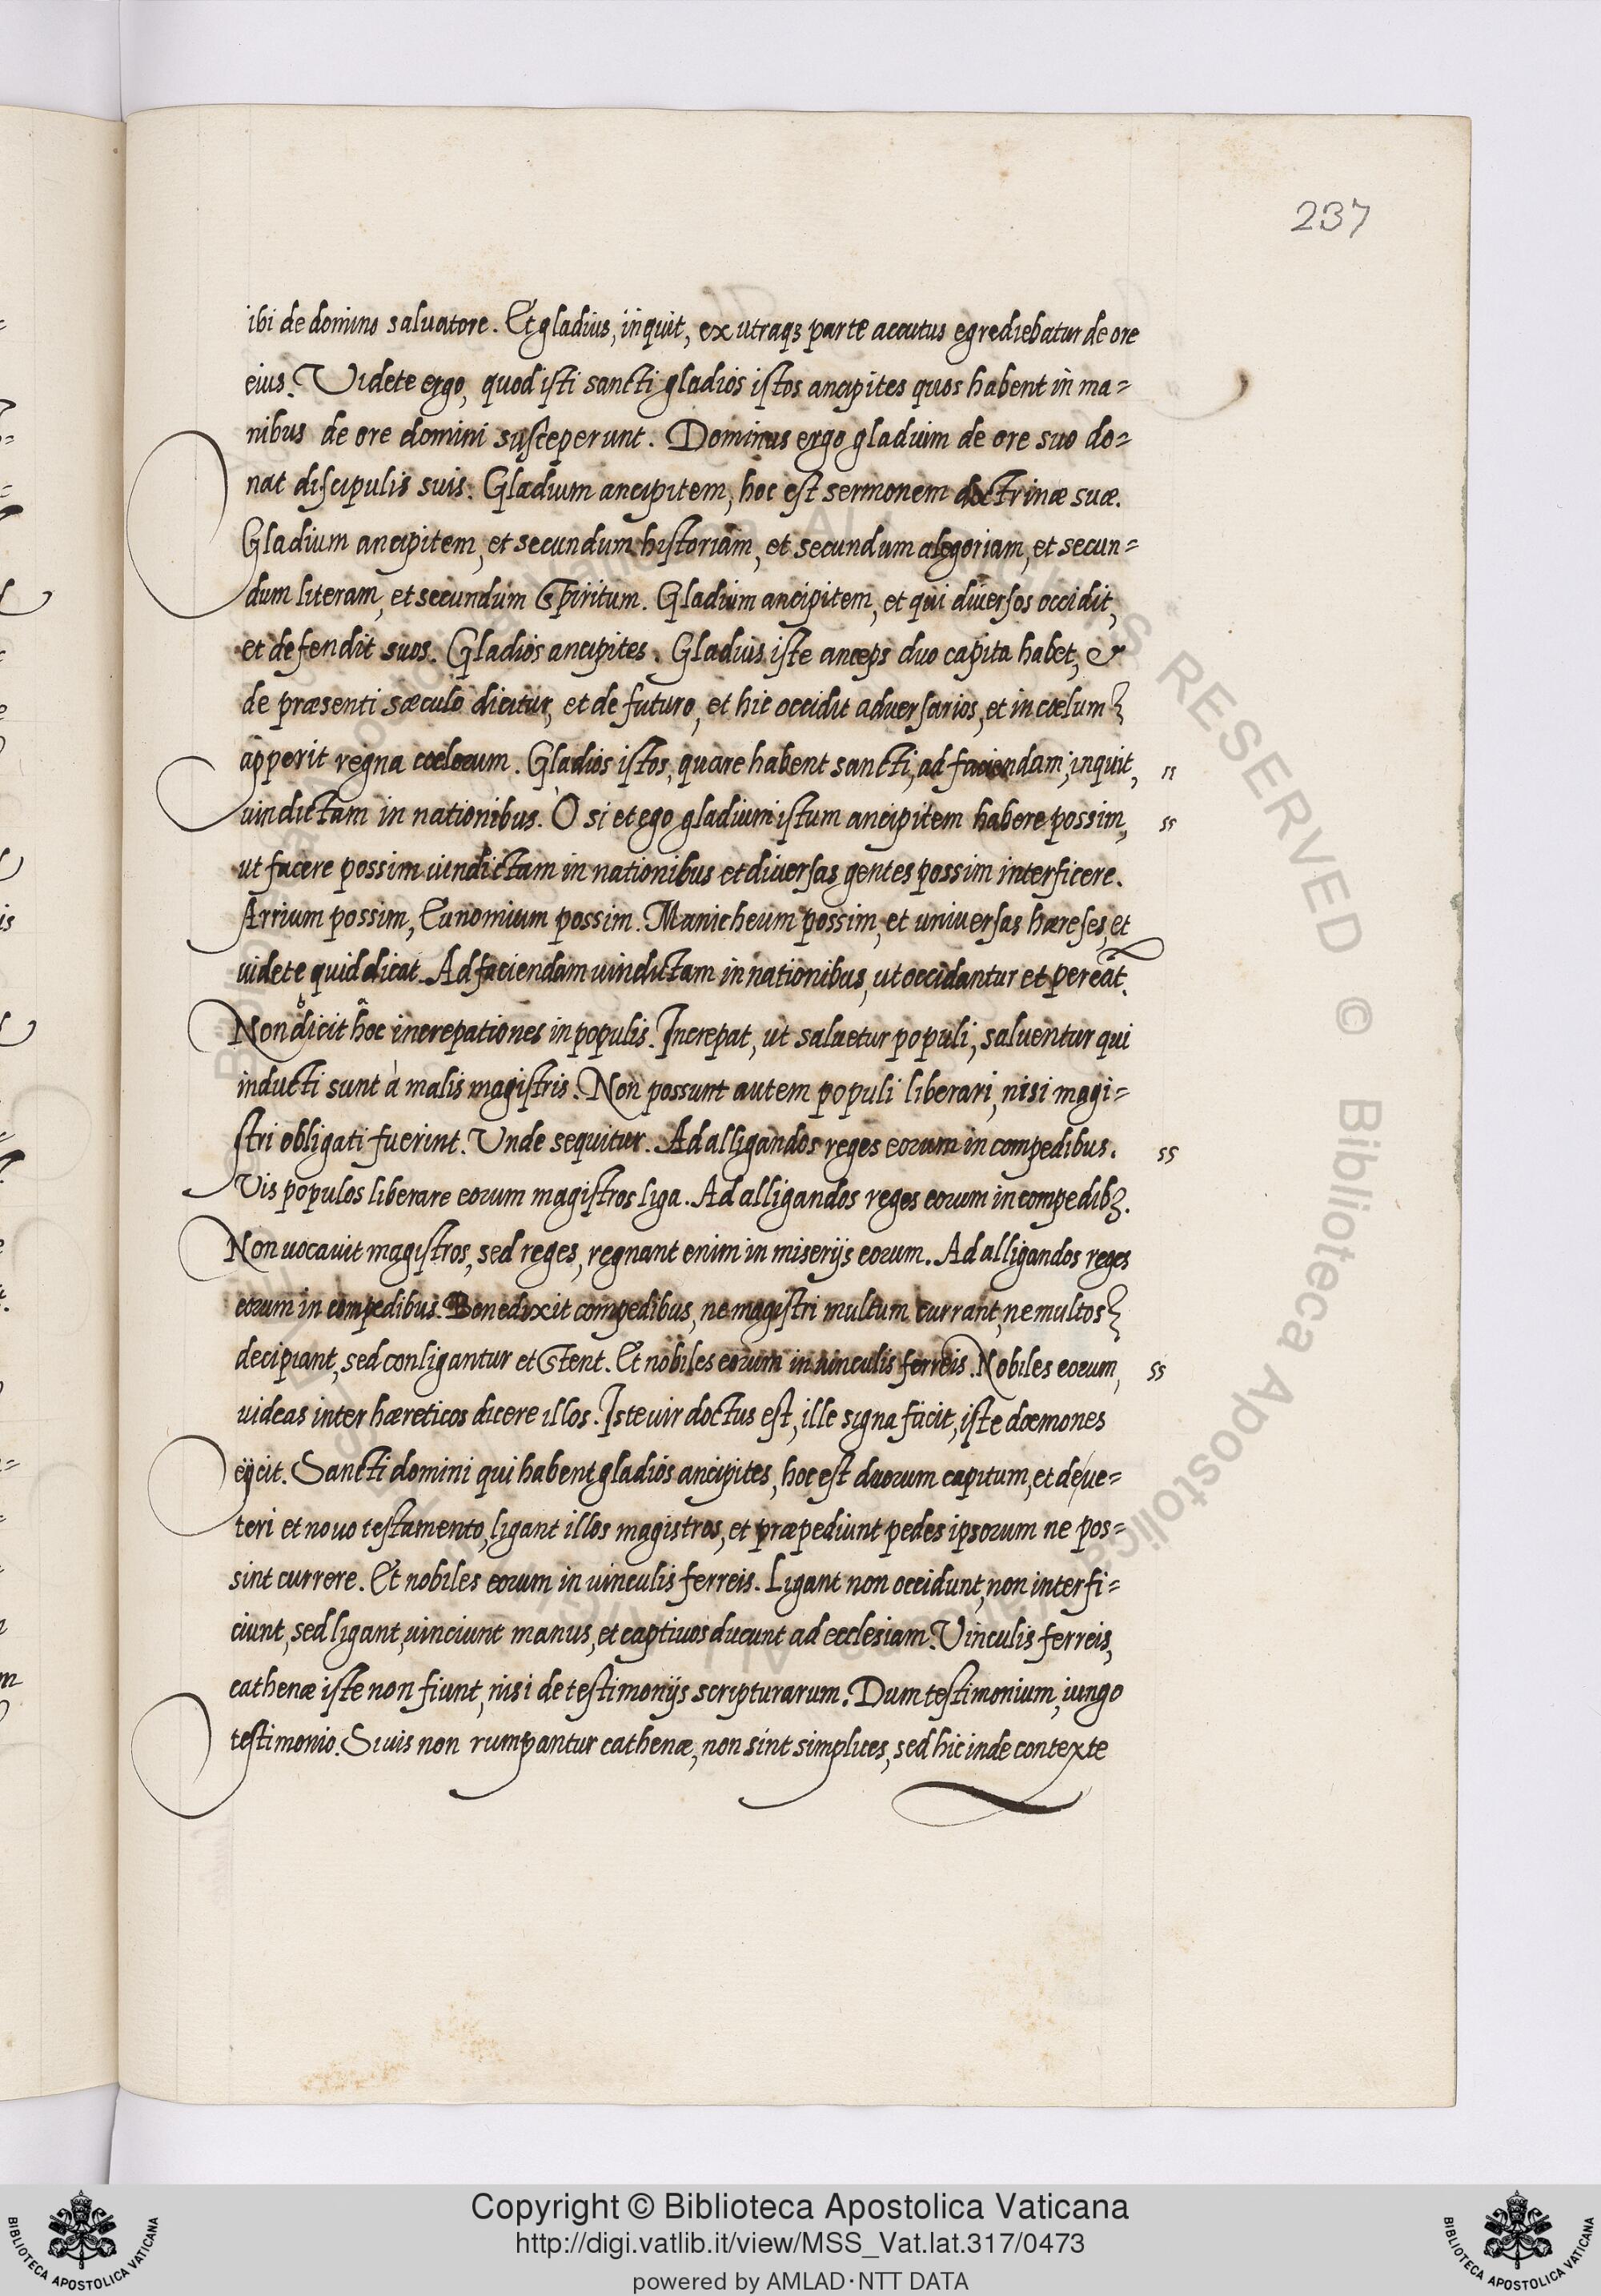 237
ibi de domino saluatore. Et gladius, inquit, ex utraqꝫ parte accutus egrediebatur de ore
eius. Videte ergo, quod isti sancti gladios istos ancipites quos habent in ma=
nibus de ore domini susceperunt. Dominus ergo gladium de ore suo do=
nat discipulis suis. Gladium ancipitem, hoc est sermonem doctrinæ suæ.
Gladium ancipitem, et secundum historiam, et secundum alegoriam, et secun=
dum literam, et secundum Spiritum. Gladium ancipitem, et qui diuersos occidit,
et defendit suos. Gladios ancipites. Gladius iste anceps duo capita habet, &
de præsenti sæculo dicitur, et de futuro, et hic occidit aduersarios, et in cœlum
apperit regna cœlorum. Gladios istos, quare habent sancti, ad faciendam, inquit, ss
uindictam in nationibus. O si et ego gladium istum ancipitem habere possim, ss
ut facere possim uindictam in nationibus et diuersas gentes possim interficere.
Arrium possim, Eunomium possim. Manicheum possim, et uniuersas hæreses, et
uidete quid dicat. Ad faciendam uindictam in nationibus, ut occidantur et pereāt.
Non dicit hoc increpationes in populis. Increpat, ut saluetur populi, saluentur qui
inducti sunt à malis magistris. Non possunt autem populi liberari, nisi magi=
stri obligati fuerint. Unde sequitur. Ad alligandos reges eorum in compedibus. ss
Vis populos liberare eorum magistros liga. Ad alligandos reges eorum in compedibꝫ.
Non uocauit magistros, sed reges, regnant enim in miserijs eorum. Ad alligandos reges
eorum in compedibus. Benedixit compedibus, ne magistri multum currant, ne multos
decipiant, sed conligantur et Stent. Et nobiles eorum in uinculis ferreis. Nobiles eorum, ss
uideas inter hæreticos dicere illos. Iste uir doctus est, ille signa facit, iste dœmones
eÿcit. Sancti domini qui habent gladios ancipites, hoc est duorum capitum, et de ue=
teri et nouo testamento, ligant illos magistros, et præpediunt pedes ipsorum ne pos=
sint currere. Et nobiles eorum in uinculis ferreis. Ligant non occidunt, non interfi=
ciunt, sed ligant, uinciunt manus, et captiuos ducunt ad ecclesiam. Vinculis ferreis,
cathenæ iste non fiunt, nisi de testimonijs scripturarum. Dum testimonium, iungo
testimonio. Si uis non rumpantur cathenæ, non sint simplices, sed hic inde contexte
Copyright © Biblioteca Apostolica Vaticana
http://digi.vatlib.it/view/MSS_Vat.lat.317/0473
powered by AMLAD·NTT DATA
BIBLIOTECA APOSTOLICA VATICANA
BIBLIOTECA APOSTOLICA VATICANA